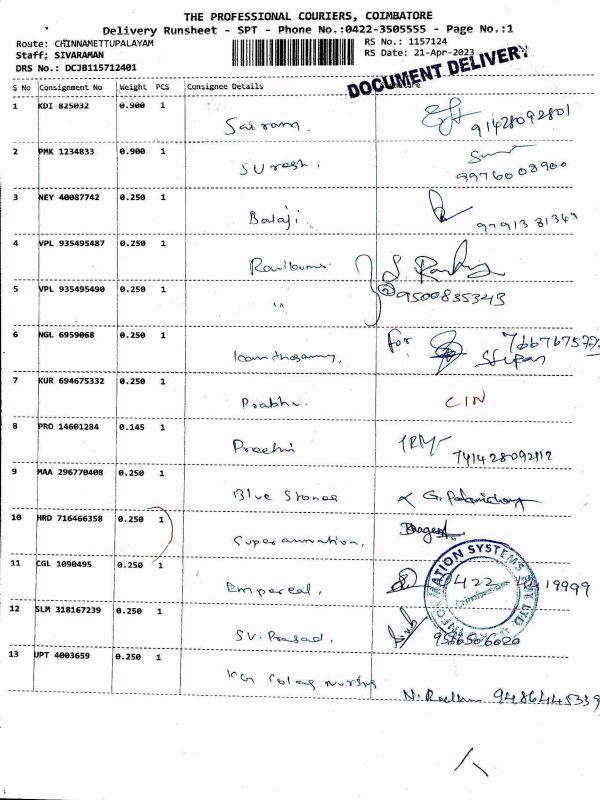 THE PROFESSIONAL COURIERS, COIMBATORE
Delivery Runsheet - SPT - Phone No.:0422-3505555 - Page No.:1
Route: CHINNAMETTUPALAYAM
RS No.: 1157124
Staff; SIVARAMAN
RS Date: 21-Apr-2023
DRS No.: DCJB115712401
DOCUMENT DELIVERY
S No Consignment No Weight PCS Consignee Details
1 KDI 825032 0.900 1 Sairam. 91428092801
2 PMK 1234833 0.900 1 Suresh. 9976008900
3 NEY 40087742 0.250 1 Balaji.
4 VPL 935495487 0.250 1
5 VPL 935495490 0.250 1 " 2 9500835343
6 NGL 6959068 0.250 1 for
7 KUR 694675332 0.250 1 Prabhu. CIN
8 PRO 14601284 0.145 1 Preethi
9 MAA 296770408 0.250 1 Blue Stones
10 HRD 716466358 0.250 1
11 CGL 1090495 0.250 1 0422
12 SLM 318167239 0.250 1 SV. Prasad. 9566506020
13 UPT 4003659 0.250 1 9486445339
INFORMATION SYSTEMS PVT LTD.